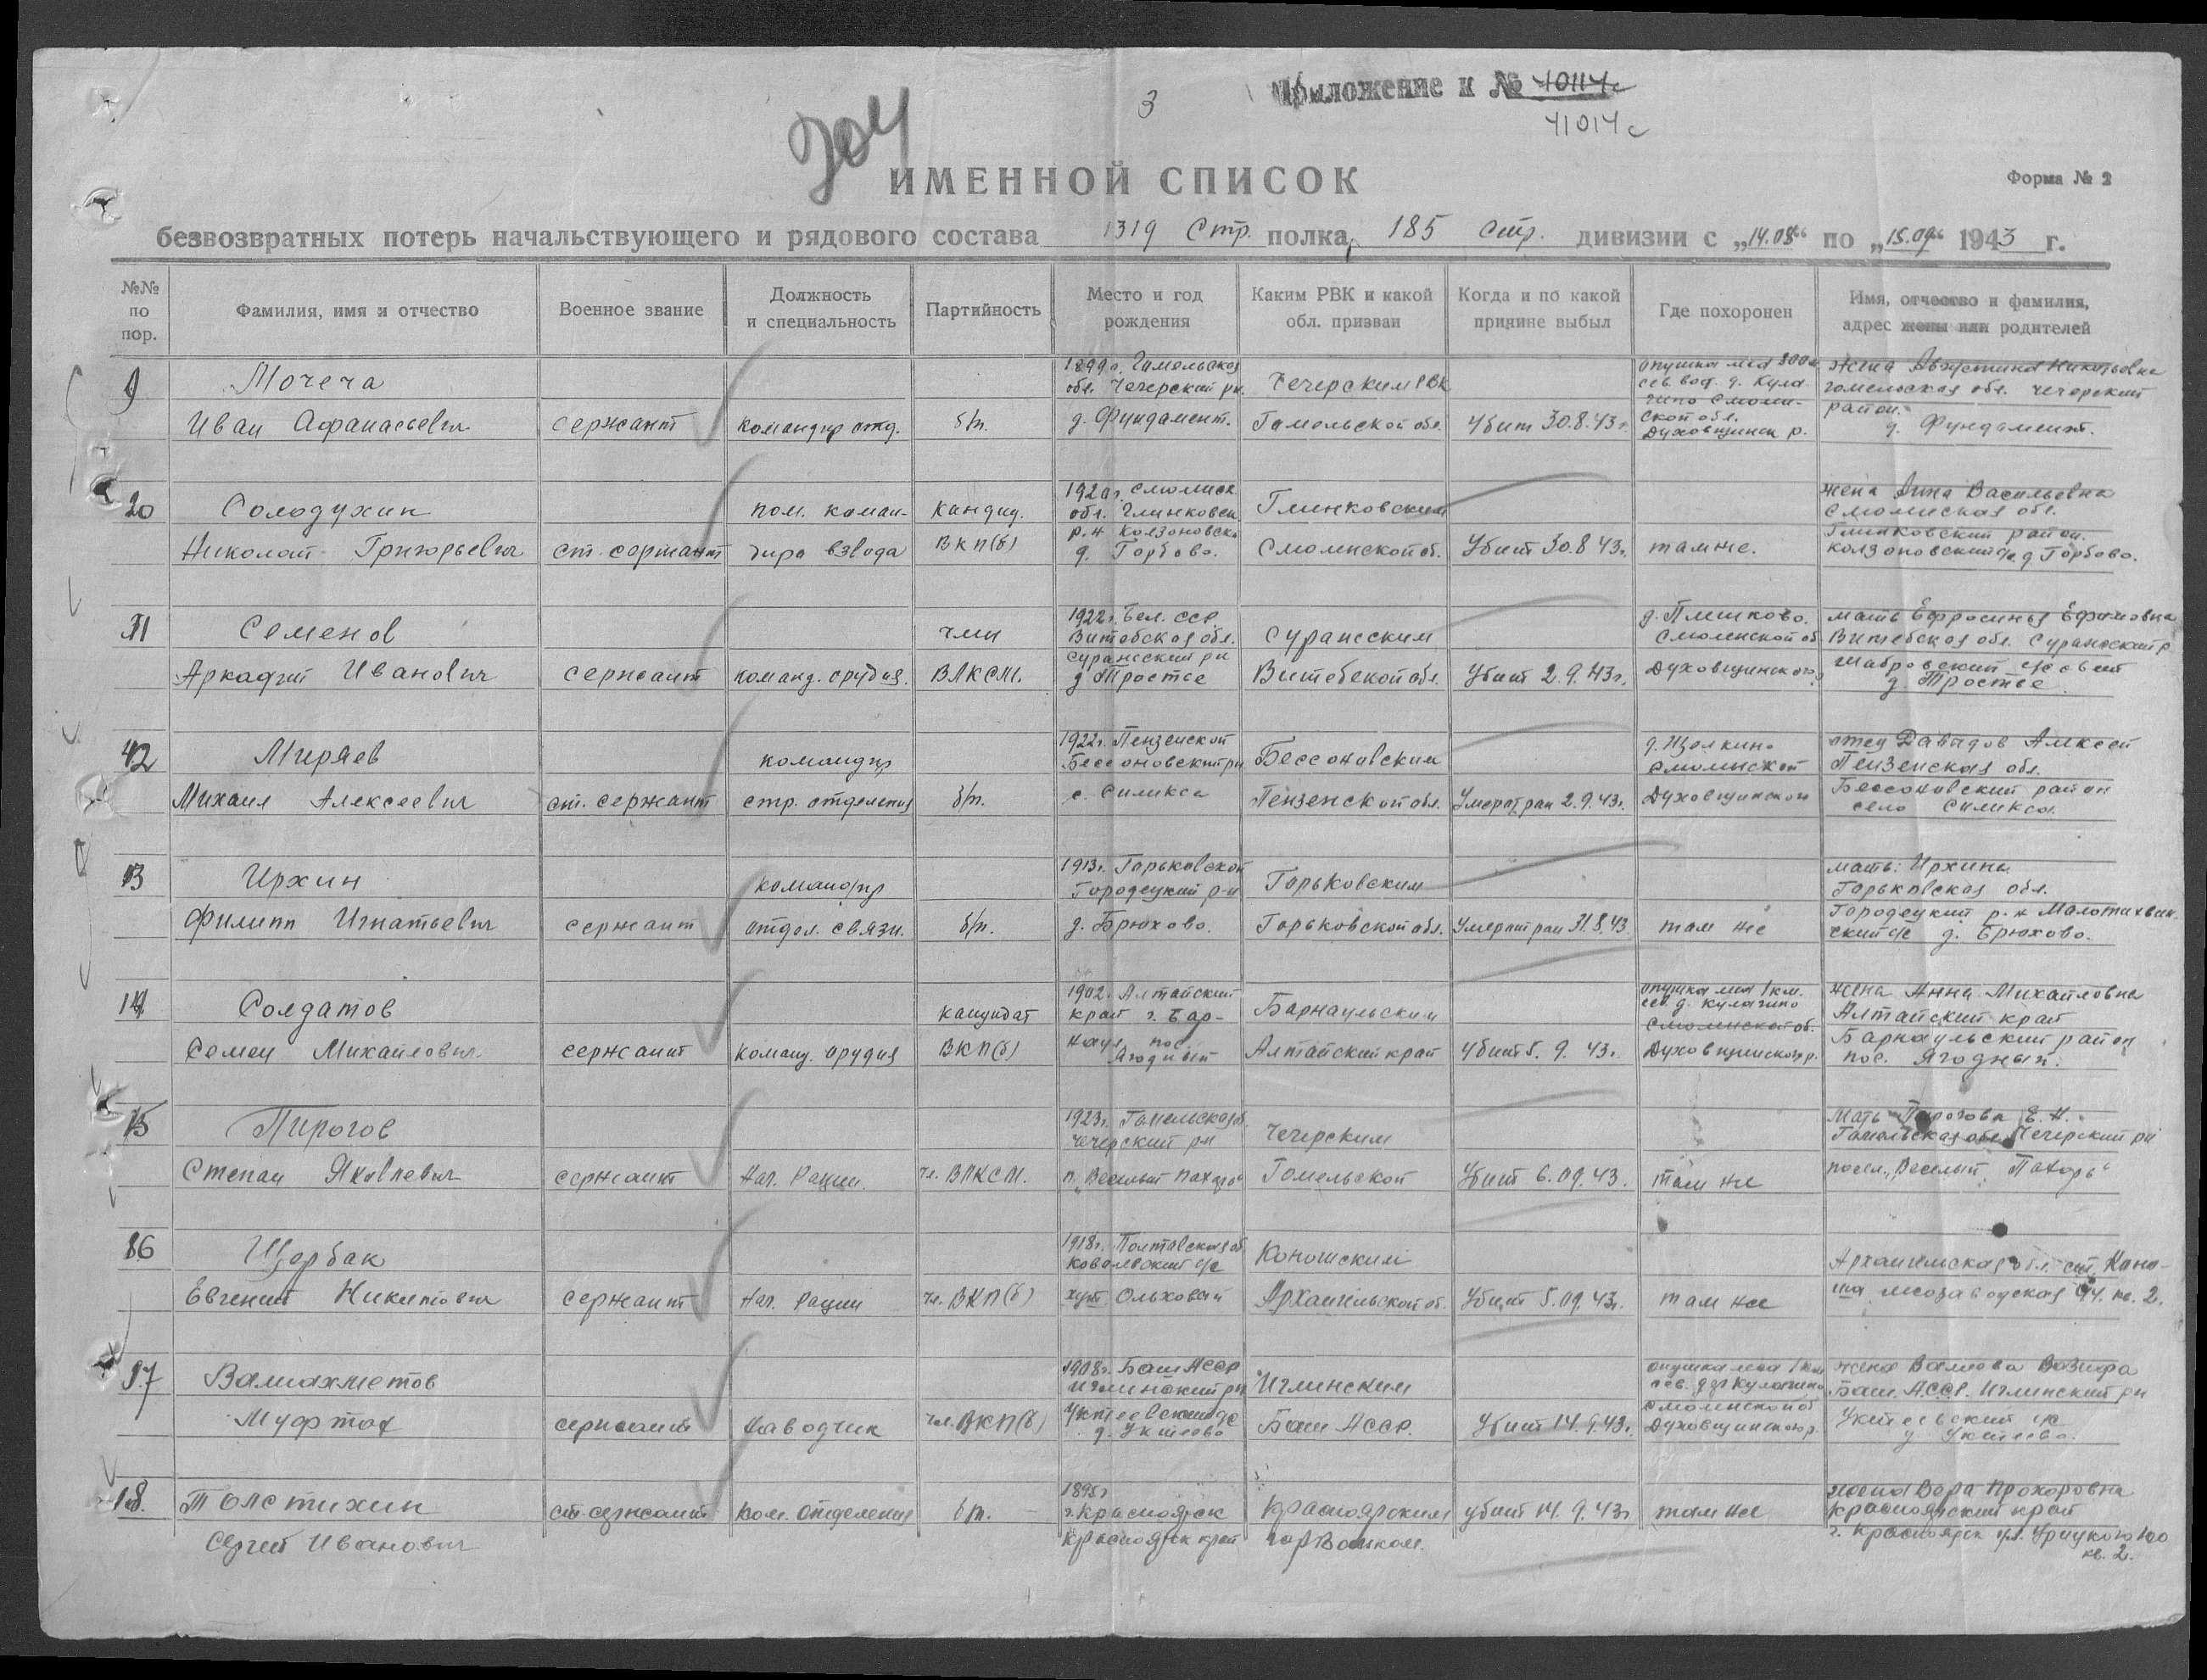 Приложение к № 40114с
41014с
3
304
ИМЕННОЙ СПИСОК
Форма № 2
безвозвратных потерь начальствующего и рядового состава 1319 Стр. полка, 185 стр. дивизии с „14.08“ по „15.09“ 1943 г.
№№ по пор. Фамилия, имя и отчество Военное звание Должность и специальность Партийность Место и год рождения Каким РВК и какой обл. призван Когда и по какой причине выбыл Где похоронен Имя, отчество и фамилия, адрес жены или родителей
9 Мочеча
Иван Афанасьевич сержант командир отд. б/п. 1899г. Гомельская обл. Чечерский рн. д. Фундамент. Чечерским РВК Гомельской обл. Убит 30.8.43г. опушка леса 800м сев. вост. д. Кулагино Смоленской обл. Духовщинск р. жена Августина Никольевна гомельская обл. чечерский район. д. Фундамент.
20 Солодухин
Николай Григорьевич ст. сержант пом. командира взвода кандид. ВКП(б) 1920г. Смоленск обл. Глинковск. р.н Колзоновск. д. Горбово. Глинковским Смоленской об. Убит 30.8.43г. там же. жена Анна Васильевна Смоленская обл. Глинковский район. Колзоновский с/с. д Горбово.
11 Семенов
Аркадий Иванович сержант команд. орудия. член ВЛКСМ. 1922г. Бел. ССР Витебская обл. Суражский рн д Тростсе Суражским Витебской обл. Убит 2.9.43г. д. Плешково. Смоленской об Духовщинского р мать Ефросинья Ефимовна Витебская обл. Суражский р. Шабровский с/совет д. Тростсе.
42 Миряев
Михаил Алексеевич ст. сержант командир стр. отделения б/п. 1922г. Пензенской Бессоновский рн с. Симикса Бессоновским Пензенской обл. Умер от ран 2.9.43г. д. Щелкино Смоленской Духовщинского отец Давыдов Алексей Пензенская обл. Бессоновский район село Симикса.
13 Иржин
Филипп Игнатьевич сержант командир отдел. связи. б/п. 1913г. Горьковской Городецкий р-н д. Брюхово. Горьковским Горьковской обл. Умер от ран 31.8.43 там же мать: Иржина Горьковская обл. Городецкий р.н ский с/с д. Брюхово.
14 Солдатов
Семен Михайлович сержант команд. орудия кандидат ВКП(б) 1902. Алтайский край г. Барнаул пос Ягодный Барнаульским Алтайский край Убит 5. 9. 43г. опушка леса 1 км. сев. д. Кулагино Смоленской об. Духовщинского р. жена Анна Михайловна Алтайский край Барнаульский район пос. Ягодный.
15 Пирогов
Степан Яковлевич сержант Нач. рации. чл. ВЛКСМ. 1923г. Гомельская о. Чечерский рн п. „Веселый Пахарь“ Чечерским Гомельской Убит 6.09.43. там же Мать Пирогова Е. Н. Гомельская обл Чечерский рн посел. „Веселый Пахарь“
86 Щербак
Евгений Никитович сержант Нач. рации чл. ВКП(б) 1918г. Полтавская об. Ковалевский с/с хут Ольховый Коношским Архангельской об. Убит 5.09.43г. там же Архангельская обл. ст. Коноша лесозаводская 94. кв. 2.
97 Валиахметов
Муфтах сержант наводчик чл. ВКП(б) 1908г. Баш АССР Иглинский рн Уктеевский с/с д. Уктеево Иглинским Баш АССР. Убит 14.9.43г. опушка леса 1 км сев. д. Кулагино Смоленской об Духовщинского р. жена Валиева Вазифа Баш. АССР. Иглинский рн Уктеевский с/с д Уктеево.
18. Толстихин
Сергей Иванович ст. сержант ком. отделения б/п. 1895г г. Красноярск Красноярск край Красноярским горвоенком. убит 14. 9. 43г там же жена Вера Прохоровна Красноярский край г. Красноярск ул. Урицкого 100 кв. 2.